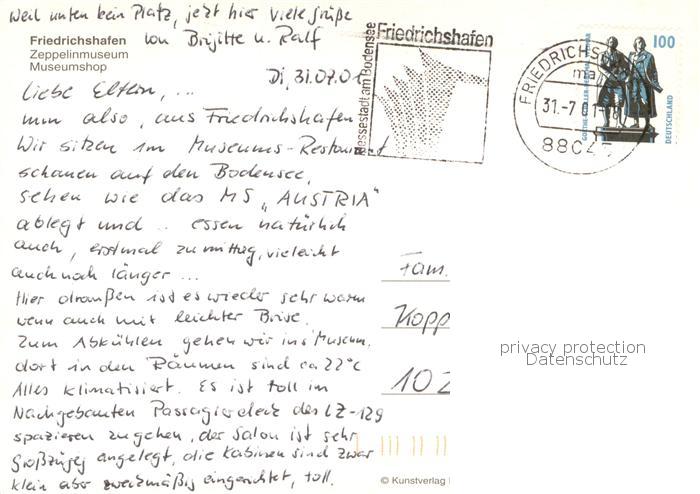 Weil unten kein Platz, jetzt hier viele Grüße
von Brigitte u. Ralf
Friedrichshafen
Zeppelinmuseum
Museumshop
Di, 31.07.01
Liebe Eltern, ...
nun also, aus Friedrichshafen
Wir sitzen im Museums-Restaurant
schauen auf den Bodensee,
sehen wie das MS „AUSTRIA"
ablegt und .. essen natürlich
auch, erstmal zu mittag, vieleicht
auch noch länger ...
Hier draußen ist es wieder sehr warm
wenn auch mit leichter Brise.
Zum Abkühlen gehen wir ins Museum,
dort in den Räumen sind ca 22°C
Alles klimatisiert. Es ist toll im
Nachgebauten Passagierdeck des LZ-129
spazieren zu gehen, der Salon ist sehr
Großzügig angelegt, die Kabinen sind zwar
klein aber zweckmäßig eingerichtet, toll.
Messestadt am Bodensee
Friedrichshafen
FRIEDRICHS
ma
31.-7.01-18
88045
100
DEUTSCHLAND
Fam.
Kopp
102
privacy protection
Datenschutz
© Kunstverlag